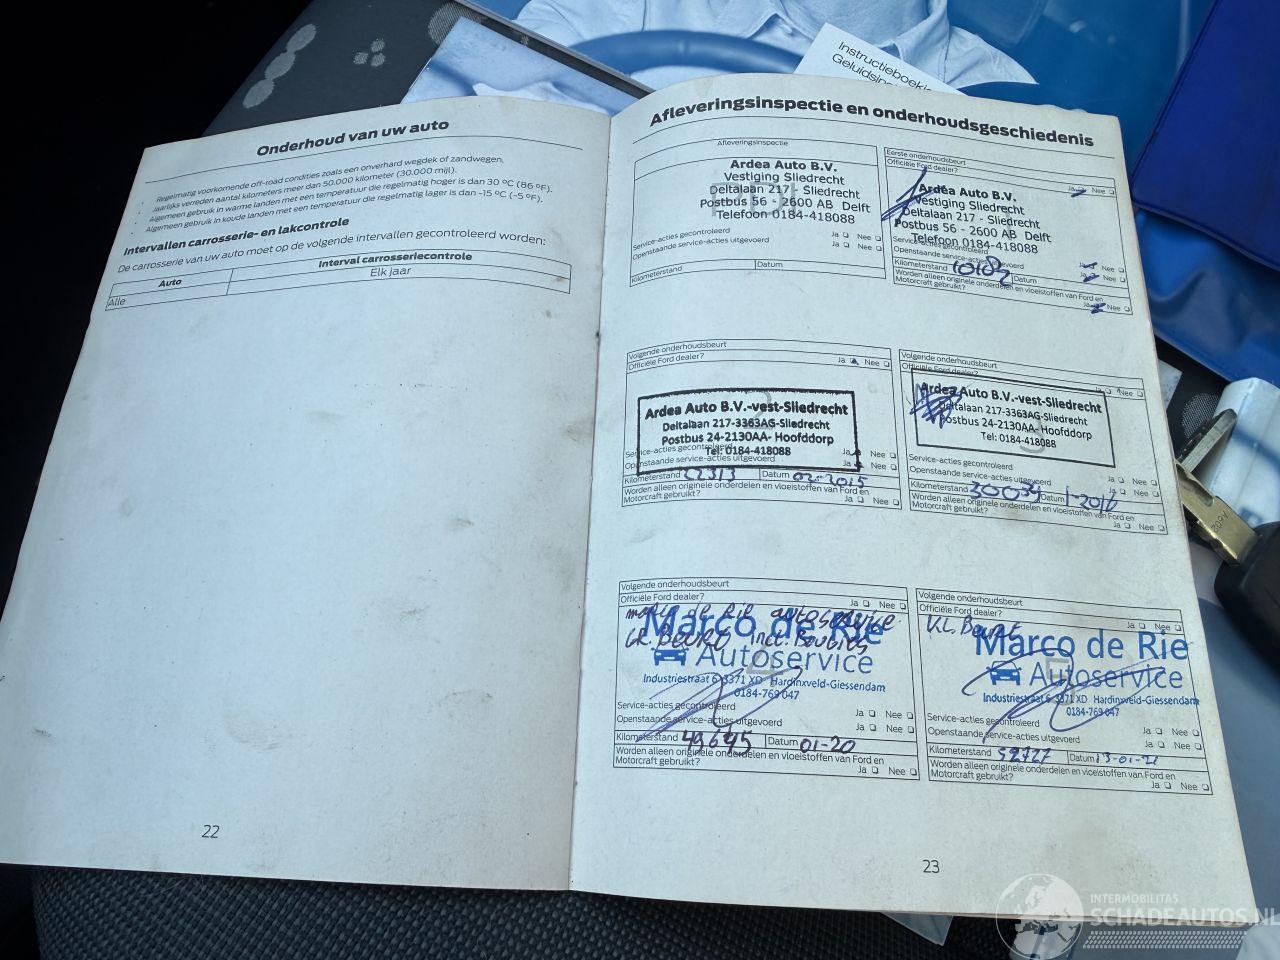 Instructieboekje
Onderhoud van uw auto
Regelmatig voorkomende off-road condities zoals een onverhard wegdek of zandwegen.
Jaarlijks verreden aantal kilometers meer dan 50.000 kilometer (30.000 mijl).
Algemeen gebruik in warme landen met een temperatuur die regelmatig hoger is dan 30 °C (86 °F).
Algemeen gebruik in koude landen met een temperatuur die regelmatig lager is dan -15 °C (-5 °F).
Intervallen carrosserie- en lakcontrole
De carrosserie van uw auto moet op de volgende intervallen gecontroleerd worden:
Auto Interval carrosseriecontrole
Alle Elk jaar
22
Afleveringsinspectie en onderhoudsgeschiedenis
Afleveringsinspectie
Ardea Auto B.V.
Vestiging Sliedrecht
Deltalaan 217 - Sliedrecht
Postbus 56 - 2600 AB Delft
Telefoon 0184-418088
Service-acties gecontroleerd Ja Nee
Openstaande service-acties uitgevoerd Ja Nee
Kilometerstand Datum
Eerste onderhoudsbeurt
Officiële Ford dealer? Ja Nee
Ardea Auto B.V.
Vestiging Sliedrecht
Deltalaan 217 - Sliedrecht
Postbus 56 - 2600 AB Delft
Telefoon 0184-418088
Service-acties gecontroleerd Ja Nee
Openstaande service-acties uitgevoerd Ja Nee
Kilometerstand Datum
Worden alleen originele onderdelen en vloeistoffen van Ford en
Motorcraft gebruikt? Ja Nee
Volgende onderhoudsbeurt
Officiële Ford dealer? Ja Nee
2
Ardea Auto B.V.-vest-Sliedrecht
Deltalaan 217-3363AG-Sliedrecht
Postbus 24-2130AA- Hoofddorp
Tel: 0184-418088
Service-acties gecontroleerd Ja Nee
Openstaande service-acties uitgevoerd Ja Nee
Kilometerstand 22313 Datum 02-2015
Worden alleen originele onderdelen en vloeistoffen van Ford en
Motorcraft gebruikt? Ja Nee
Volgende onderhoudsbeurt
Officiële Ford dealer? Ja Nee
3
Ardea Auto B.V.-vest-Sliedrecht
Deltalaan 217-3363AG-Sliedrecht
Postbus 24-2130AA- Hoofddorp
Tel: 0184-418088
Service-acties gecontroleerd
Openstaande service-acties uitgevoerd Ja Nee
Kilometerstand 30034 Datum 1-2016
Worden alleen originele onderdelen en vloeistoffen van Ford en
Motorcraft gebruikt? Ja Nee
Volgende onderhoudsbeurt
Officiële Ford dealer? Ja Nee
de Rie autoservice
GR. Beurt incl. Bougies
4
Marco de Rie
Autoservice
Industriestraat 6 3371 XD Hardinxveld-Giessendam
0184-769 047
Service-acties gecontroleerd Ja Nee
Openstaande service-acties uitgevoerd Ja Nee
Kilometerstand 49645 Datum 01-20
Worden alleen originele onderdelen en vloeistoffen van Ford en
Motorcraft gebruikt? Ja Nee
Volgende onderhoudsbeurt
Officiële Ford dealer? Ja Nee
Beurt
5
Marco de Rie
Autoservice
Industriestraat 6 3371 XD Hardinxveld-Giessendam
0184-769 047
Service-acties gecontroleerd Ja Nee
Openstaande service-acties uitgevoerd Ja Nee
Kilometerstand 52727 Datum 13-01-21
Worden alleen originele onderdelen en vloeistoffen van Ford en
Motorcraft gebruikt? Ja Nee
23
INTERMOBILITAS
SCHADEAUTOS.NL